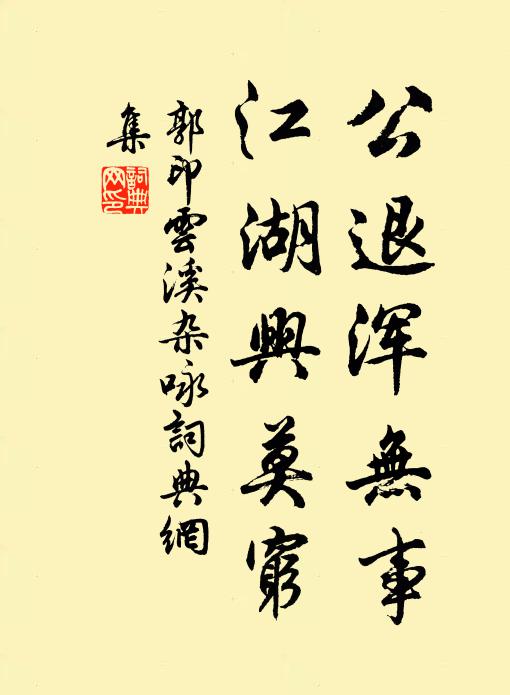 公退浑無事
江湖興莫窮
郭印雲溪杂咏詞典網
集
詞典网印